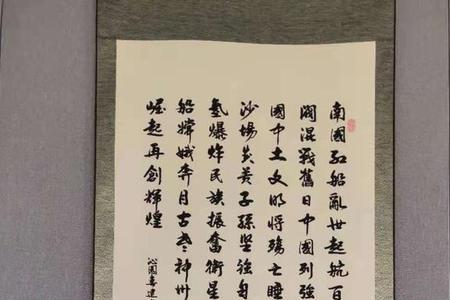 南國紅船亂世起航百
閥混戰舊日中國列強
國中土文明將殤亡睡
沙場炎黃子孫堅強自
氫爆炸民族振奮衛星
船嫦娥奔月古老神州
崛起再創輝煌
沁園春